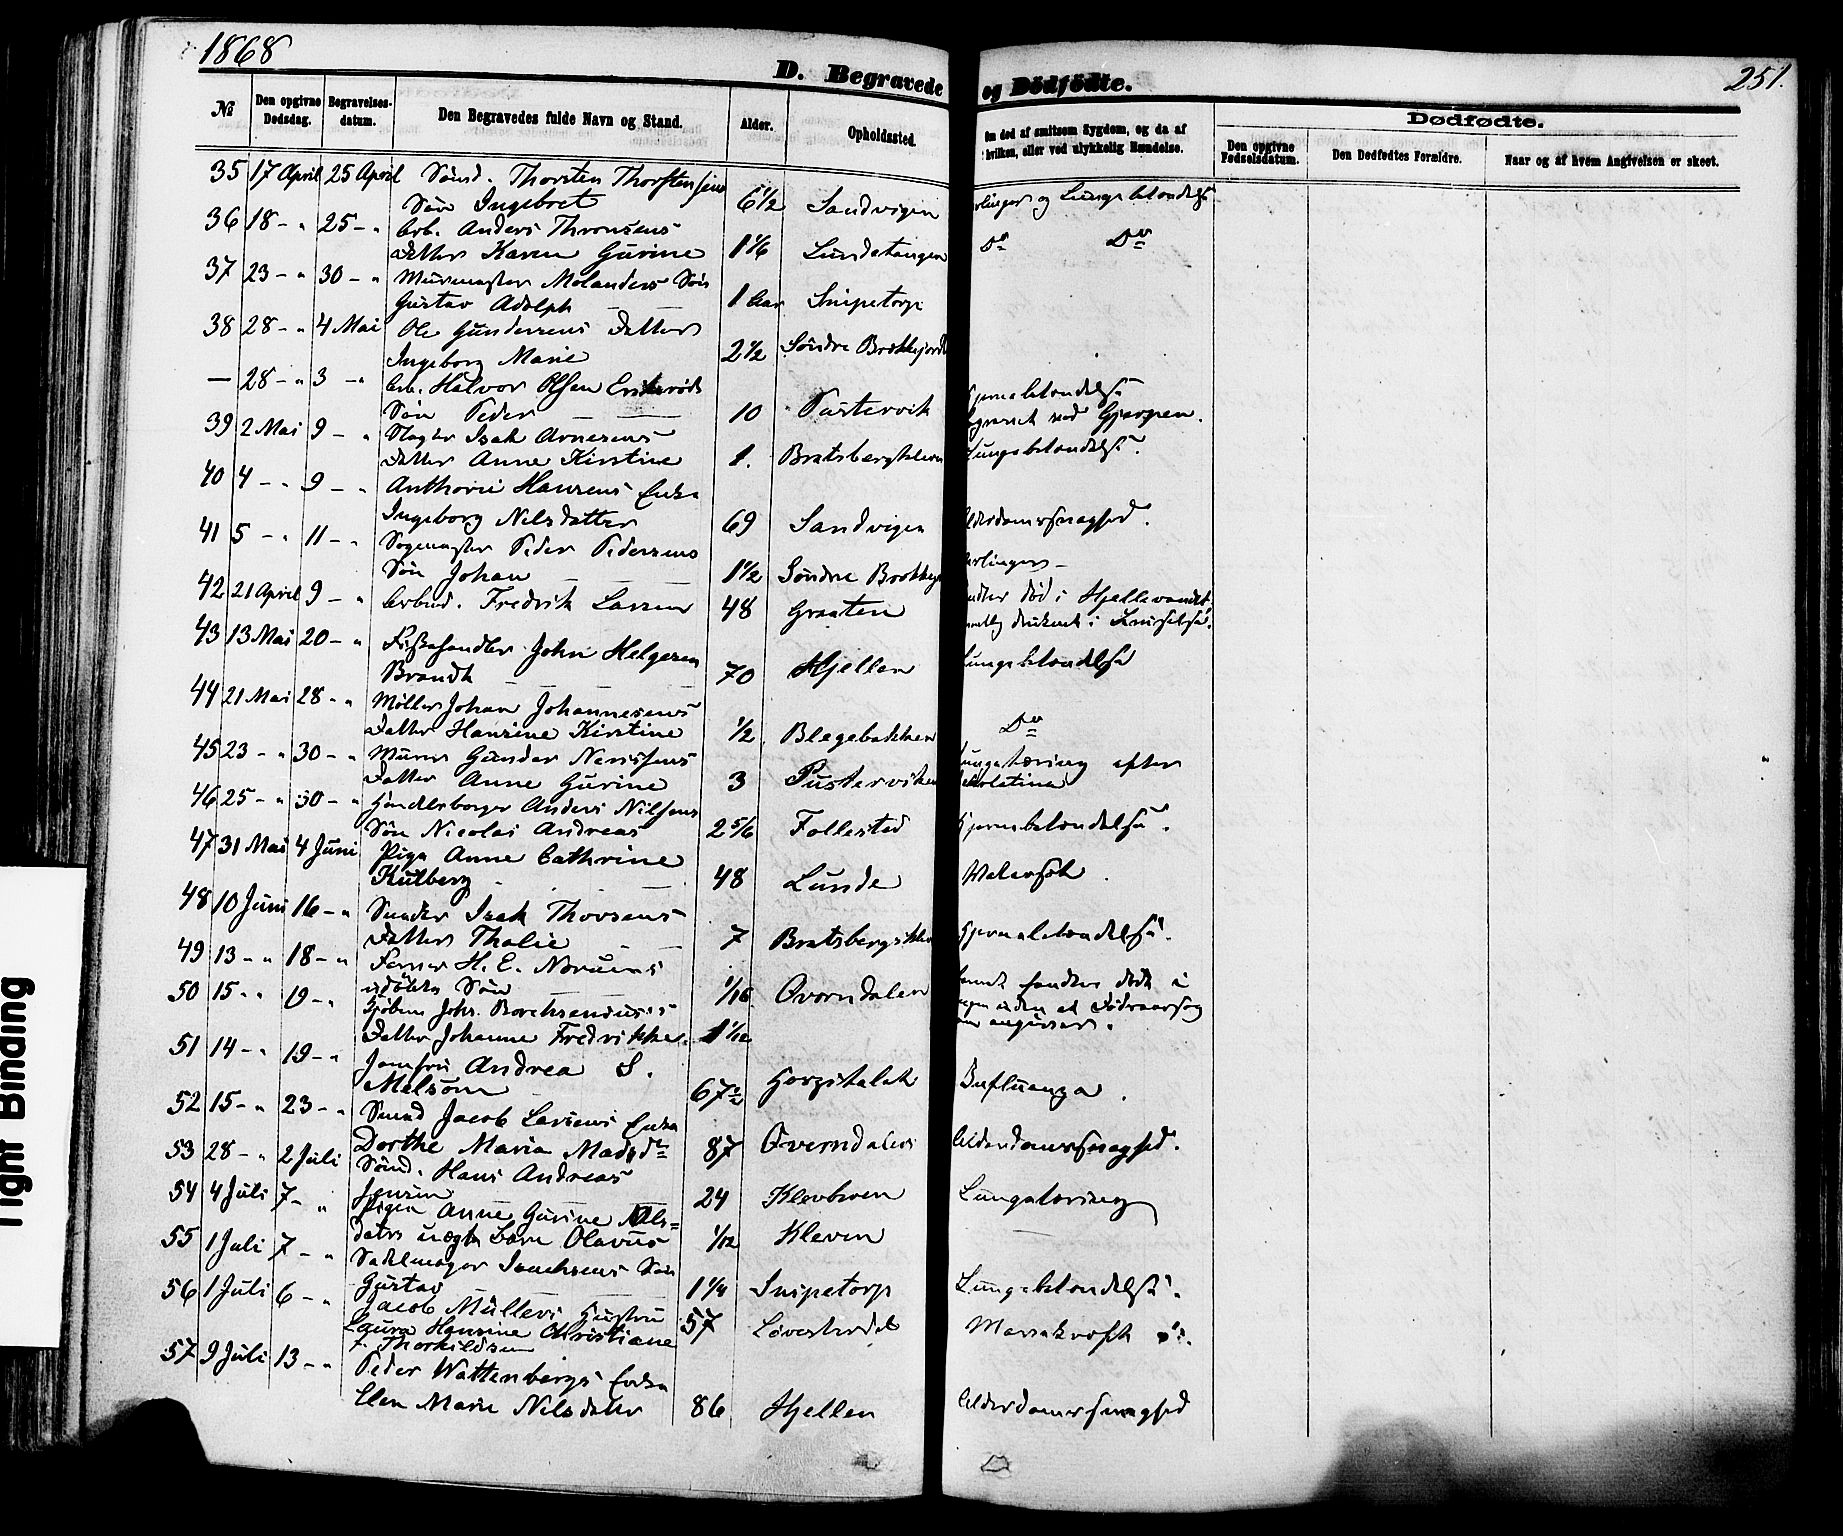 1868
D. Begravede og Dödfödte.
251.
№ Den opgivne Dødsdag. Begravelses-datum. Den Begravedes fulde Navn og Stand. Alder. Opholdssted. Om død af smitsom Sygdom, og da af hvilken, eller ved ulykkelig Hændelse.
Dødfødte.
Den opgivne Fødselsdatum. Den Dødfødtes Forældre. Naar og af hvem Angivelsen er skeet.
35 17 April 25 April Sömd. Thorsten Thorstensens
Sön Ingebret 6½ Sandvigen og Lungebetændelse
36 18 - " 25 - " Arb. Anders Thronsens
Datter Karen Gurine 1 1/6 Lundetangen Do Do
37 23 - " 30 - " Murmester Molanders Sön
Gustav Adolph 1 Aar Snipetorp
38 28 - " 4 Mai Ole Gundersens Datter
Ingeborg Marie 2½ Söndre Brekkejorde
— 28 - " 3 - " Arb. Halvor Olsen
Sön Peder 10 Pustervik Hjernebetændelse
begravet ved Gjerpen.
39 2 Mai 9 - " Slagter Isak Arnesens
Datter Anne Kirstine 1. Bratsbergkleven Lungebetændelse.
40 4 - " 9 - " Anthoni Hansens Enke
Ingeborg Nilsdatter 69 Sandvigen Alderdomssvaghed.
41 5 - " 11 - " Sagmester Peder Pedersens
Sön Johan 1½ Söndre
42 21 April 9 - " Arbeid. Fredrik Larsen 48 Graaten død i Hjellevandet,
druknet i
43 13 Mai 20 - " John Helgesen
Brandt 70 Hjellen Lungebetændelse
44 21 Mai 28 - " Møller Johan Johannesens
Datter Hansine Kirstine ½ Blegebakken Do
45 23 - " 30 - " Murer Gunder Nerisens
Datter Anne Gurine 3 Pusterviken Lungetæring efter
46 25 - " 30 - " Handelsborger Anders Nilsens
Sön Nicolai Andreas 2 5/6 Follestad Hjernebetændelse.
47 31 Mai 4 Juni Pige Anne Cathrine
Kulberg 48 Lunde Watersot.
48 10 Juni 16 - " Smeder Isak Thorsens
Datter Thalie 7 Bratsbergkleven Hjernebetændelse.
49 13 - " 18 - " H. E.
udöbte Sön 1/16 Overndalen
uden at Dödsaarsag
angives.
50 15 - " 19 - " Johs.
Datter Johanne Fredrikke 1 1/12
51 14 - " 19 - " Jomfru Andrea S.
Melsom 67½ Hospitalet Influenza.
52 15 - " 23 - " Smed Jacob Larsens Enke
Dorthe Maria Madsdr 87 Overndalen Alderdomssvaghed.
53 28 - " 2 Juli Sömd. Hans Andreas
Jensen 24 Lungetæring
54 4 Juli 7 - " Pigen Anne Gurine Nils=
datrs uægte Barn Olavus 1/12 Kleven
55 1 Juli 7 - " Sadelmager Isachsens Sön
Gustav 1¼ Snipetorp Lungebetændelse.
56 1 Juli 6 - " Jacob Müllers Hustru
Laura Hansine Christiane
f. Thorkildsen 57 Lövestredet
57 9 Juli 13 - " Peder Wattenbergs Enke
Elen Marie Nilsdatter 86 Hjellen Alderdomssvaghed
Tight Binding